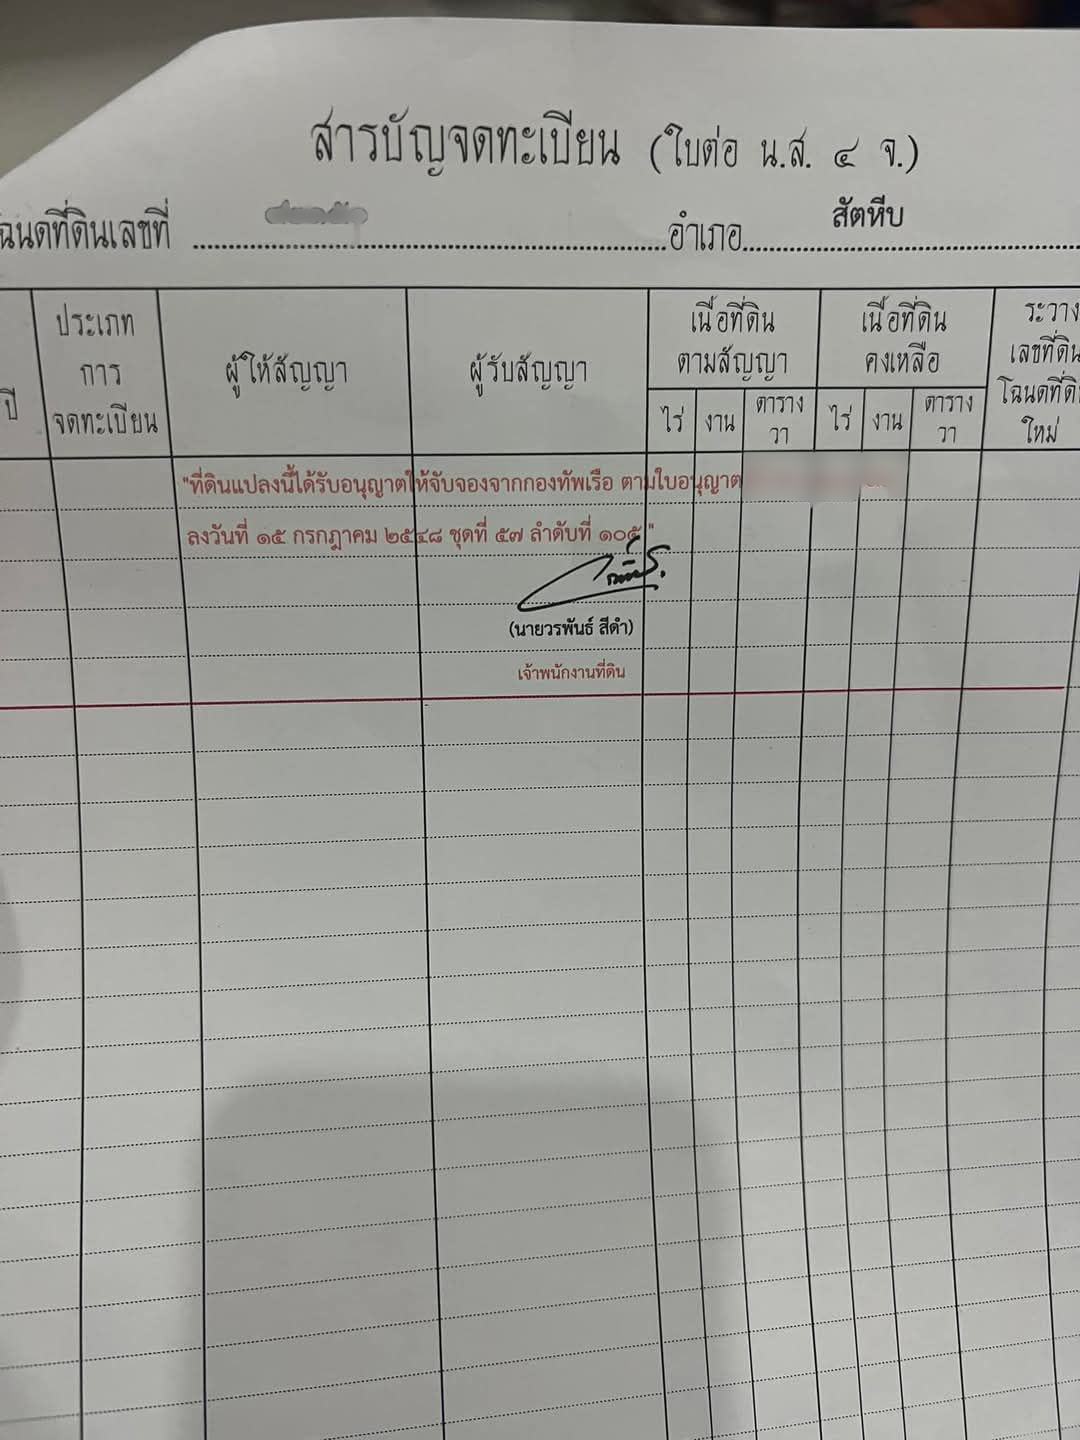 สารบัญจดทะเบียน (ใบต่อ น.ส. ๔ จ.)
โฉนดที่ดินเลขที่ อำเภอ สัตหีบ
ปี
ประเภท
การ
จดทะเบียน
ผู้ให้สัญญา
ผู้รับสัญญา
เนื้อที่ดิน
ตามสัญญา
ไร่ งาน ตาราง
วา
เนื้อที่ดิน
คงเหลือ
ไร่ งาน ตาราง
วา
ระวาง
เลขที่ดิน
โฉนดที่ดิน
ใหม่
"ที่ดินแปลงนี้ได้รับอนุญาตให้จับจองจากกองทัพเรือ ตามใบอนุญาต
ลงวันที่ ๑๕ กรกฎาคม ๒๕๔๘ ชุดที่ ๕๗ ลำดับที่ ๑๐๕ "
(นายวรพันธ์ สีดำ)
เจ้าพนักงานที่ดิน